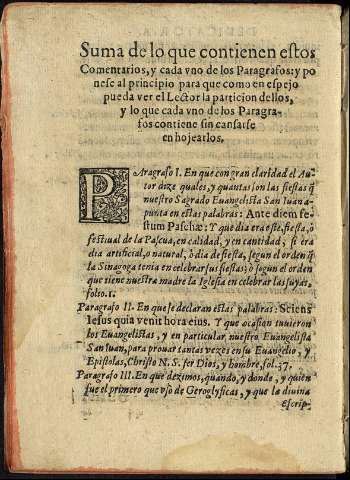 Suma de lo que contienen estos
Comentarios, y cada vno de los Paragrafos: y po
nese al principio para que como en espejo
pueda ver el Lector la particion dellos,
y lo que cada vno de los Paragra-
fos contiene sin cansarse
en hojearlos.
PAragrafo I. En que con gran claridad el Au
tor dize quales, y quantas son las fiestas q̃
nuestro Sagrado Euangelista San Iuan a-
punta en estas palabras: Ante diem fe-
stum Paschæ: Y que dia era este, fiesta, ò
festiual de la Pascua, en calidad, y en cantidad, si era
dia artificial, o natural, ò dia de fiesta, segun el orden q̃
la Sinagoga tenia en celebrar sus fiestas; ò segun el orden
que tiene nuestra madre la Iglesia en celebrar las suyas.
folio.1.
Paragrafo II. En que se declaran estas palabras: Sciens
Iesus quia venit hora eius. Y que ocasion tuuieron
los Euangelistas, y en particular nuestro Euangelista
San Iuan, para prouar tantas vezes en su Euangelio, y
Epistolas, Christo N. S. ser Dios, y hombre, fol. 37.
Paragrafo III. En que dezimos, quando, y donde, y quien
fue el primero que vsò de Geroglyficas, y que la diuina
Escrip-